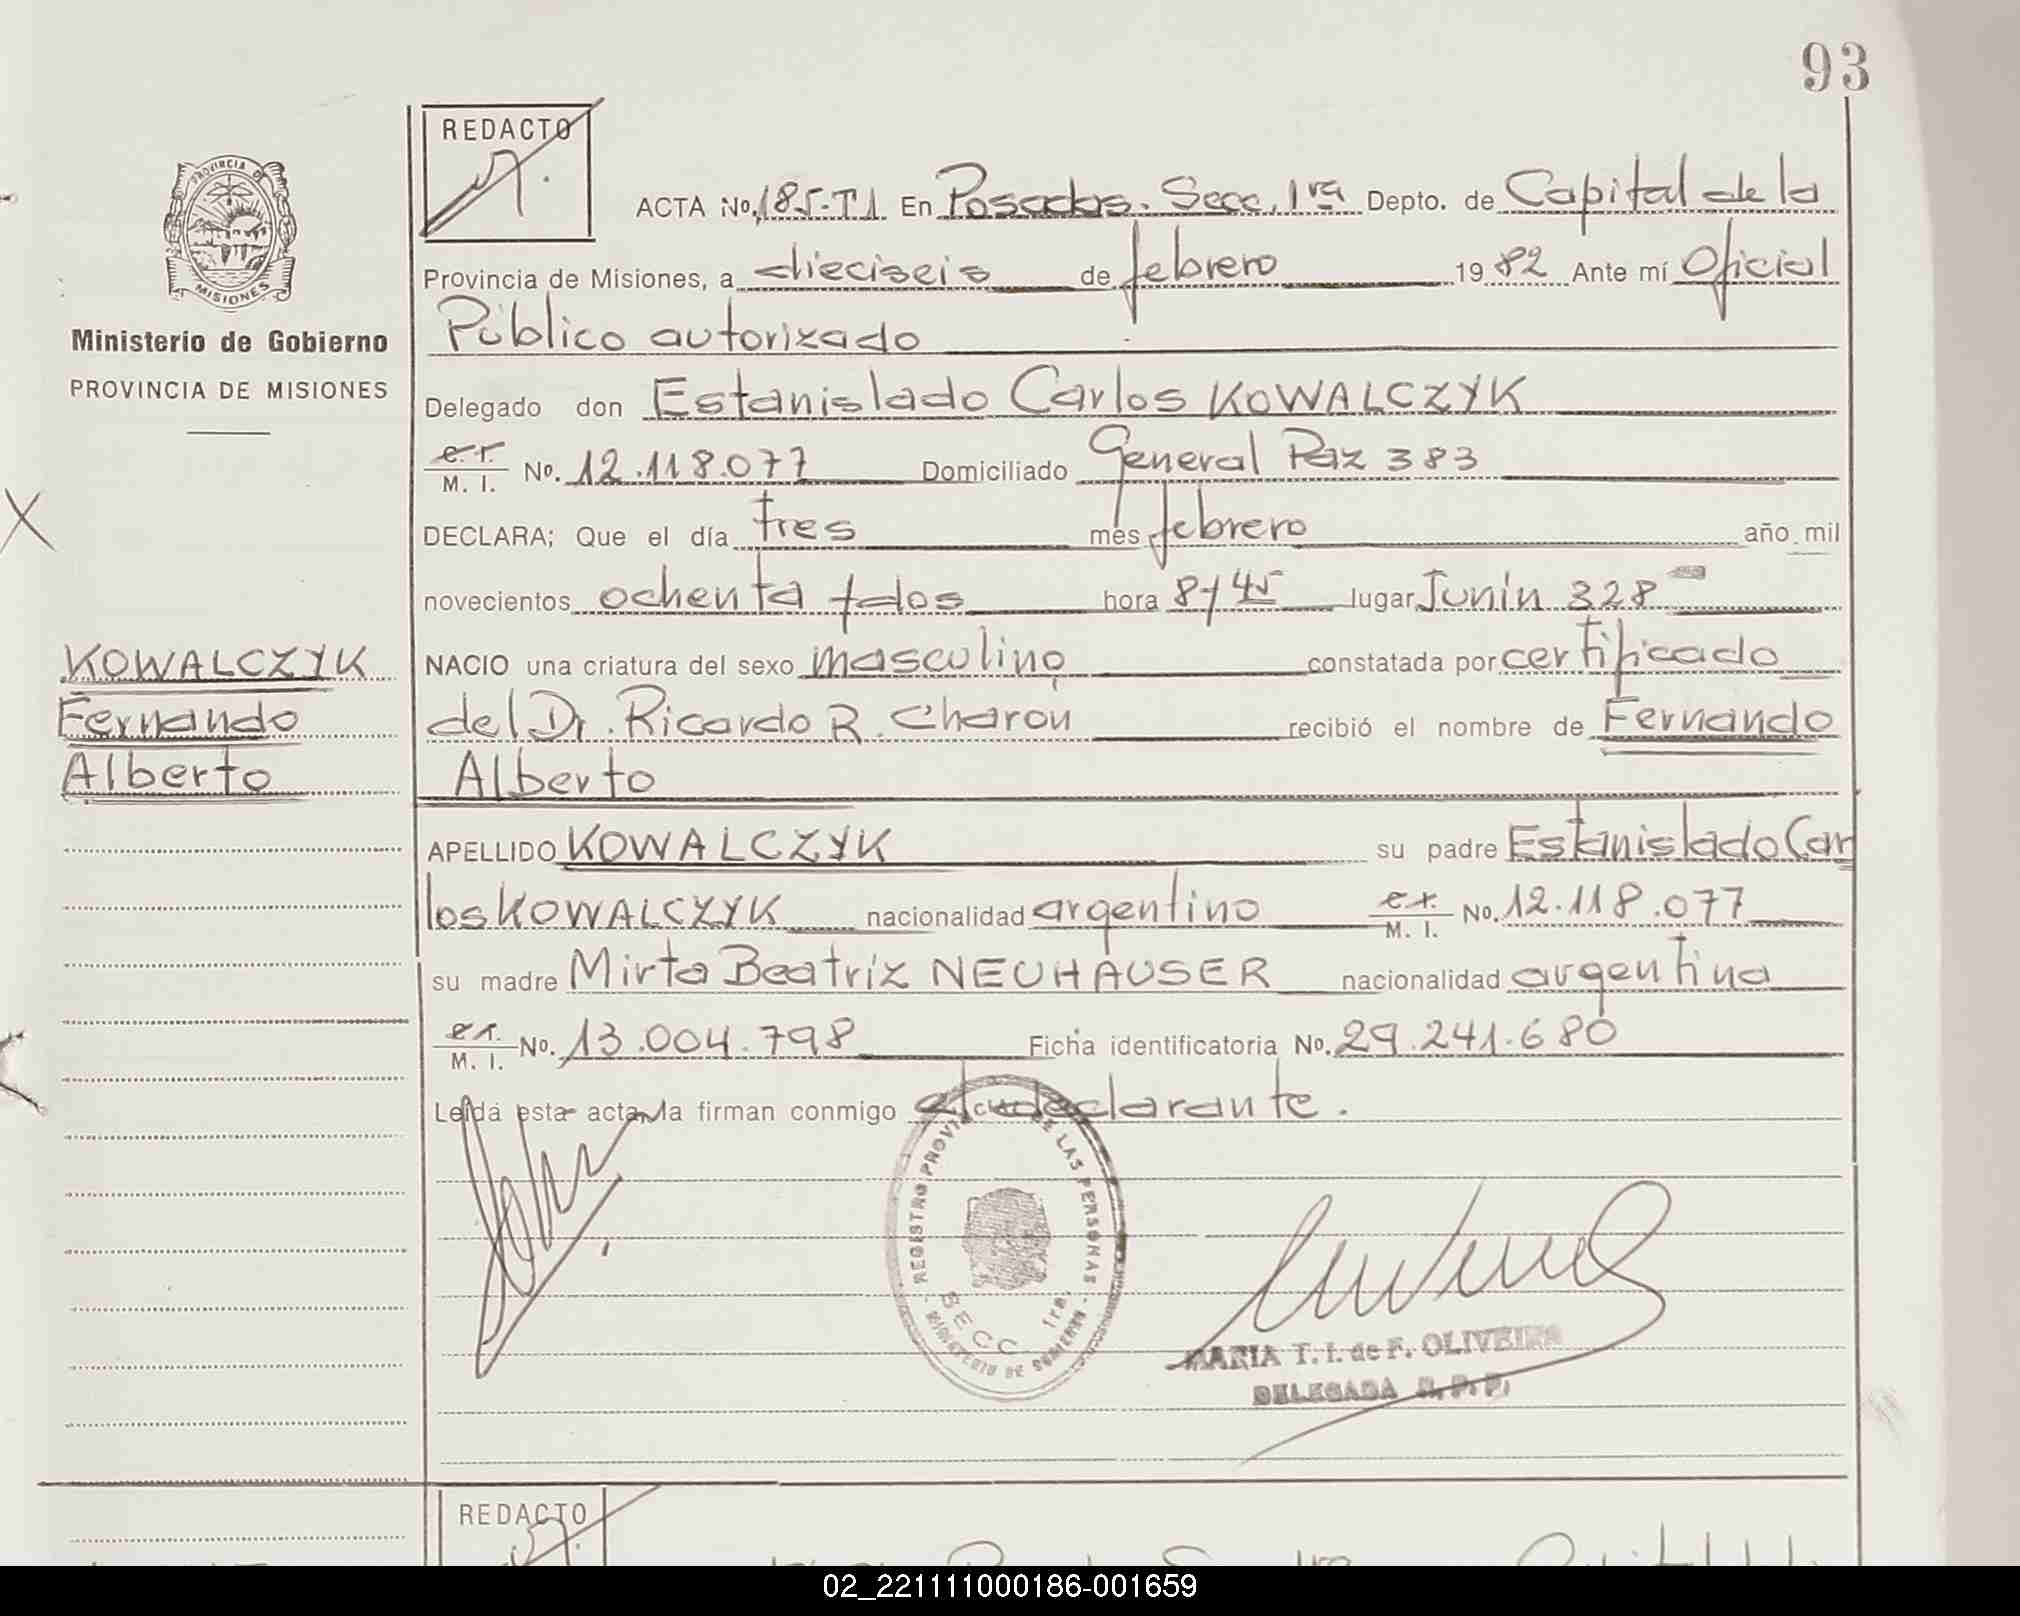 93
REDACTO
PROVINCIA DE
MISIONES
Ministerio de Gobierno
PROVINCIA DE MISIONES
ACTA No. 185-T1 En Posadas. Secc. 1ra Depto. de Capital de la
Provincia de Misiones, a dieciseis de febrero 1982 Ante mí Oficial
Público autorizado
Delegado don Estanislado Carlos KOWALCZYK
M. I. No. 12.118.077 Domiciliado General Paz 383
DECLARA; Que el día tres mes febrero año mil
novecientos ochenta y dos hora 8 y 45 lugar Junín 328
NACIO una criatura del sexo masculino constatada por certificado
del Dr. Ricardo R. Charon recibió el nombre de Fernando
Alberto
KOWALCZYK
Fernando
Alberto
APELLIDO KOWALCZYK su padre Estanislado Car
los KOWALCZYK nacionalidad argentino M. I. No. 12.118.077
su madre Mirta Beatriz NEUHAUSER nacionalidad argentina
M. I. No. 13.004.798 Ficha identificatoria No. 29.241.680
Leída esta acta, la firman conmigo el declarante.
REGISTRO PROVINCIAL DE LAS PERSONAS
SECC. 1ra.
MINISTERIO DE GOBIERNO
MARIA T. I. de F. OLIVEIRA
DELEGADA R. P. P.
REDACTO
02_221111000186-001659